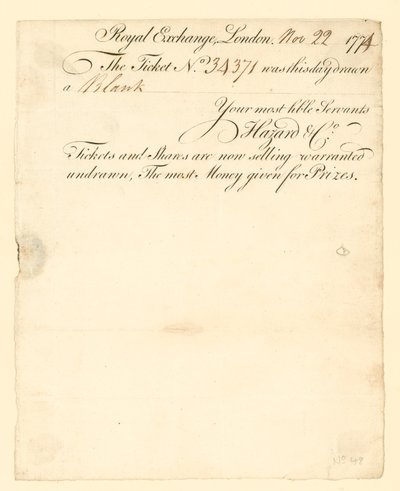 Royal Exchange, London. Nov 22 1774
The Ticket No. 34371 was this day drawn
a Blank
Your most hble Servants
Hazard & Co.
Tickets and Shares are now selling warranted
undrawn, The most Money given for Prizes.
No 48